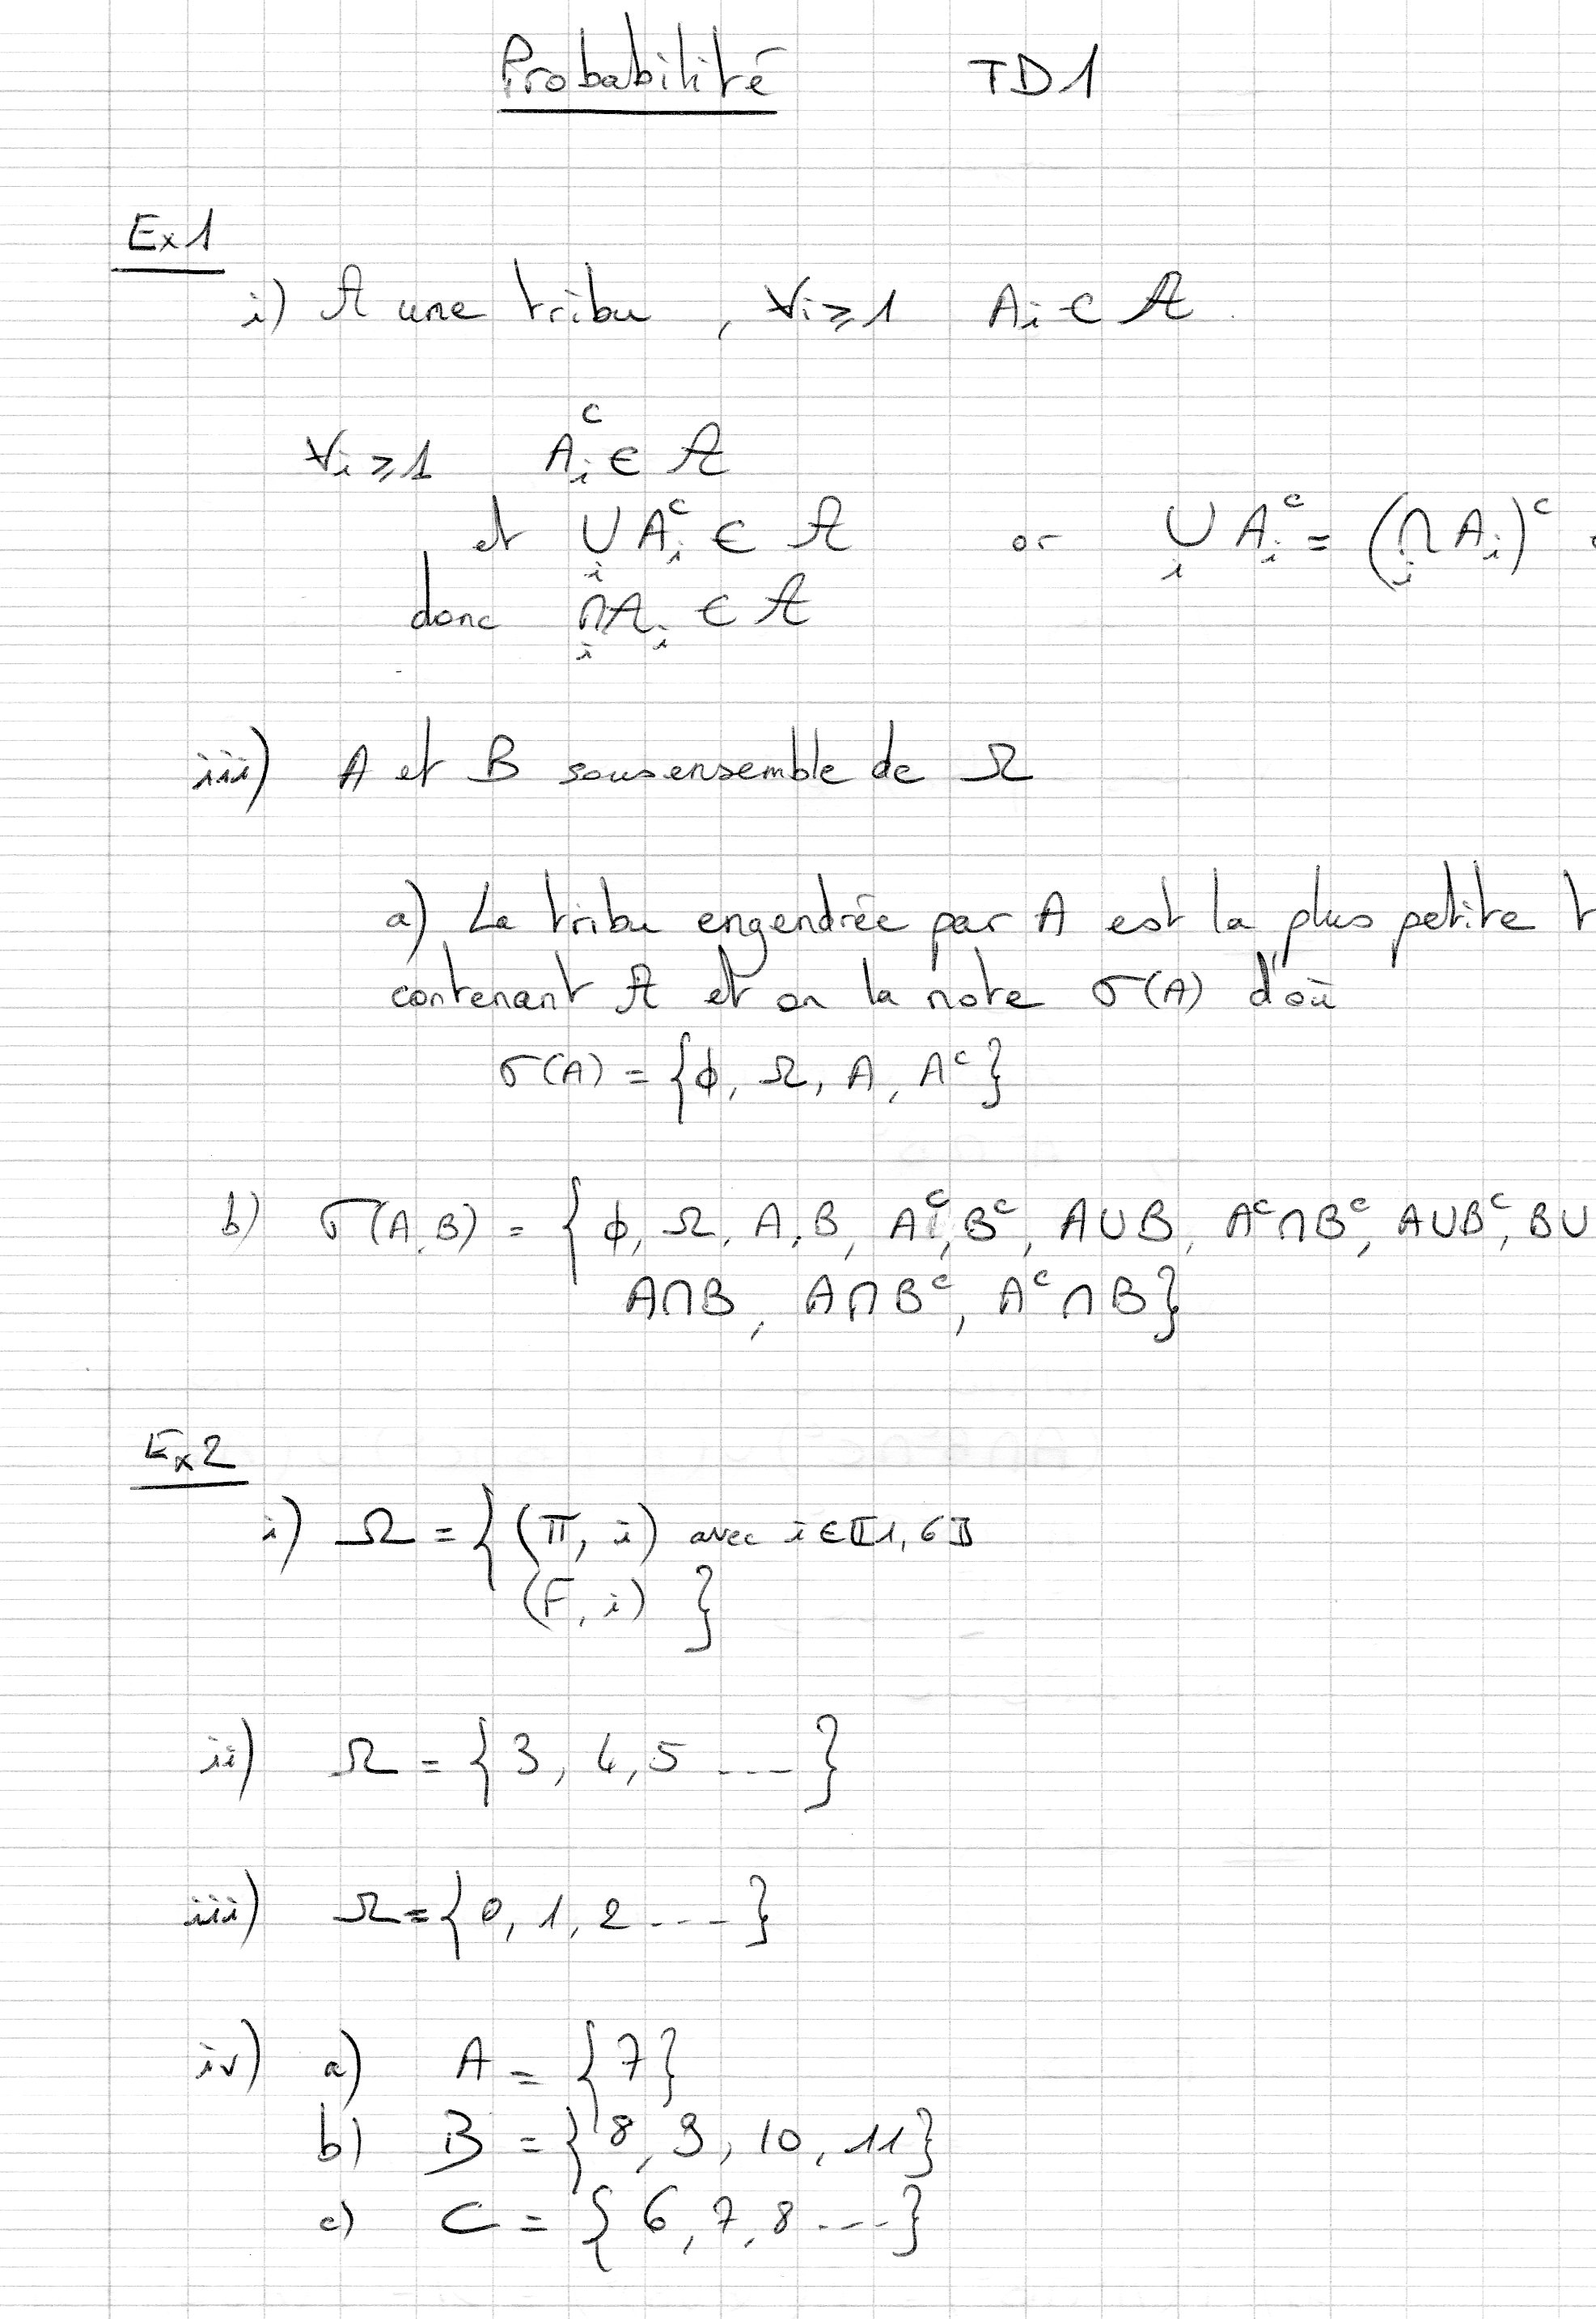 Probabilité TD1
Ex1
i) A une tribu, ∀i⩾1 Ai ∈ A.
∀i⩾1 Aᵢᶜ ∈ A
et ∪ᵢ Aᵢᶜ ∈ A or ∪ᵢ Aᵢᶜ = (∩ᵢ Aᵢ)ᶜ
donc ∩ᵢ Aᵢ ∈ A
iii) A et B sous ensemble de Ω
a) La tribu engendrée par A est la plus petite t
contenant A et on la note σ(A) d'où
σ(A) = {ϕ, Ω, A, Aᶜ}
b) σ(A,B) = {ϕ, Ω, A, B, Aᶜ, Bᶜ, A∪B, Aᶜ∩Bᶜ, A∪Bᶜ, B∪
A∩B, A∩Bᶜ, Aᶜ∩B}
Ex2
i) Ω = {(π, i) avec i∈⟦1,6⟧
(F, i) }
ii) Ω = {3, 4, 5 ---}
iii) Ω = {0, 1, 2 ---}
iv) a) A = {7}
b) B = {8, 9, 10, 11}
c) C = {6, 7, 8 ---}